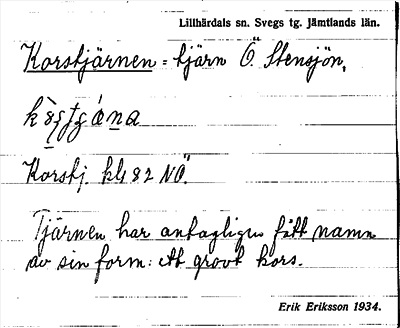 Lillhärdals sn. Svegs tg. Jämtlands län.
Korstjärnen = tjärn Ö Stensjön.
Korstj. kbl 82 NÖ.
Tjärnen har antagligen fått namn
av sin form: ett grovt kors.
Erik Eriksson 1934.